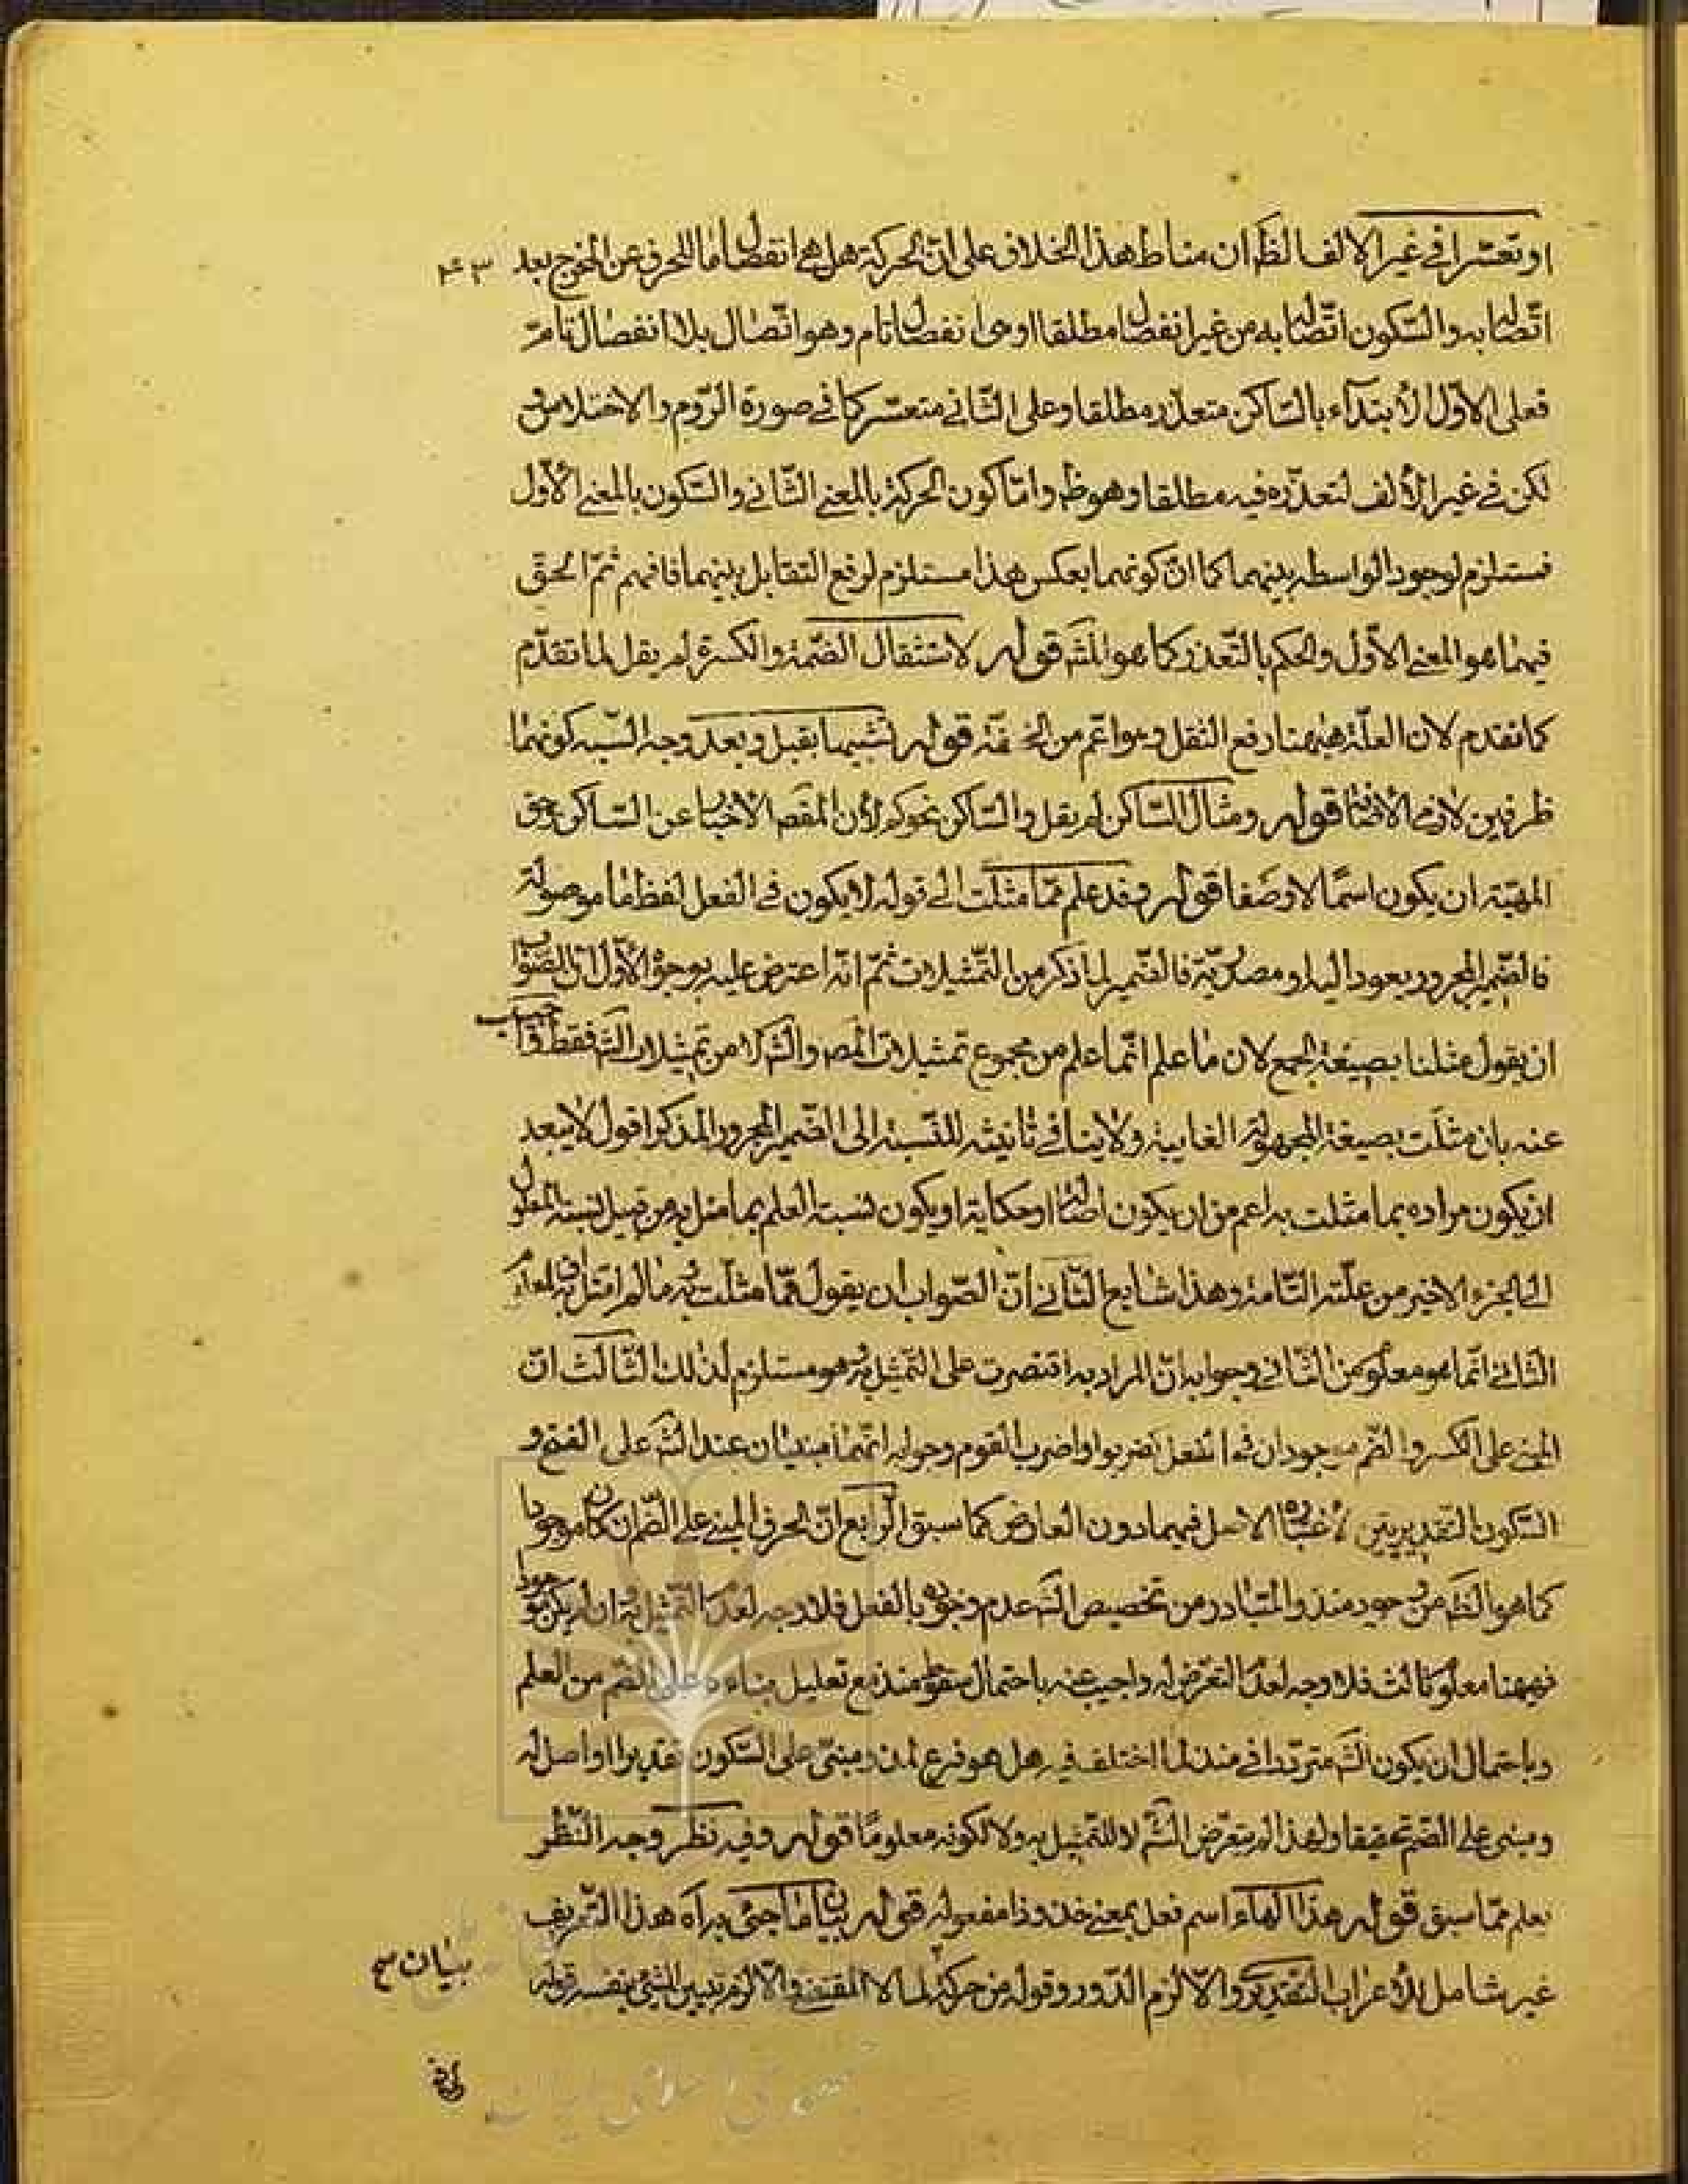 او تعسّرا في غير الالف الظ ان مناط هذا الخلاف على انّ الحركة هل هي انفصال ما للحرف عن المخرج بعد
اتّصاله به والسّكون اتّصاله به من غير انفصال مطلقا او هي انفصال تام وهو اتّصال بلا انفصال تامّ
فعلى الاوّل الابتداء بالسّاكن متعذّر مطلقا وعلى الثّاني متعسّر كما في صورة الرّوم والاختلاس
لكن في غير الالف لتعذّره فيه مطلقا وهو ظ وامّا كون الحركة بالمعنى الثّاني والسّكون بالمعنى الاوّل
فمستلزم لوجود الواسطه بينهما كما انّ كونهما بعكس هذا مستلزم لرفع التقابل بينهما فافهم ثمّ الحقّ
فيهما هو المعنى الاوّل والحكم بالتّعذر كما هو المشه قوله لاستثقال الضّمة والكسرة لم يقل لما تقدّم
كما تقدم لان العلّة ههنا رفع الثقل وهو اعمّ من الخفّة قوله تشبيها بقبل وبعد وجه الشّبه كونهما
ظرفين لازمي الاضافة قوله ومثال السّاكن لم يقل والسّاكن نحو كم لان المقصد الاخبار عن السّاكن وحق
المبتدا ان يكون اسمًا لا وصفا قوله وقد علم ممّا مثلت الى قوله لا يكون في الفعل لفظ ما موصولة
فالضّمير المجرور يعود اليها او مصدريّة فالضّمير لما ذكر من التّمثيلات ثمّ انّه اعترض عليه بوجوه الاوّل انّ الصّواب
ان يقول مثلنا بصيغة الجمع لان ما علم انّما علم من مجموع تمثيلات المص والشه لا من تمثيلات الشه فقط واجيب
عنه بان مثلت بصيغة المجهولة الغايبة ولا ينافي تانيثه للنّسبة الى الضّمير المجرور المذكر اقول لا يبعد
ان يكون مراده بما مثلت به اعم من ان يكون اصالة او حكاية او يكون نسبة العلم بما مثل به من قبيل نسبة المعلول
الى الجزء الاخير من علّته التّامة وهذا شايع الثّاني انّ الصّواب ان يقول ممّا مثلت به وما لم امثل به لان علم
الثاني انّما هو معلوم من الثّاني وجوابه انّ المراد به اقتصرت على التّمثيل به وهو مستلزم لذلك الثّالث انّ
المبني على الكسر والضّم موجودان في الفعل كضربوا واضرب القوم وجوابه انّهما مبنيان عند الشه على الفتح و
السّكون التّقديريين لاعتباره الاصل فيهما دون العارض كما سبق الرّابع انّ الحرف المبنى على الضّم ان كان موجودا
كما هو الظ من وجود منذ والمتبادر من تخصيص الشه عدم وجوده بالفعل فلا وجه لعدم التّمثيل به وان لم يكن موجودا
فههنا معلوم ثالث فلا وجه لعدم التعرّض له واجيب عنه باحتمال سقوط منذ مع تعليل بناءه على الضّم من القلم
وباحتمال ان يكون الشه متردّدا في منذ لما اختلف فيه هل هو فرع لمذ ومبنيّ على السّكون تقديرا او اصل له
ومبنى على الضّم تحقيقا ولهذا لم يتعرّض الشه لا للتّمثيل به ولا لكونه معلومًا قوله وفيه نظر وجه النّظر
يعلم ممّا سبق قوله هذا الهاء اسم فعل بمعنى خذ وذا مفعوله قوله بيان ما جئ به اه هذا التّعريف
غير شامل للاعراب التقديري والّا لزم الدّور وقوله من حركة بيان لما لا المقتضى والّا لزم تبيين الشئ بنفسه قوله
بيان سح